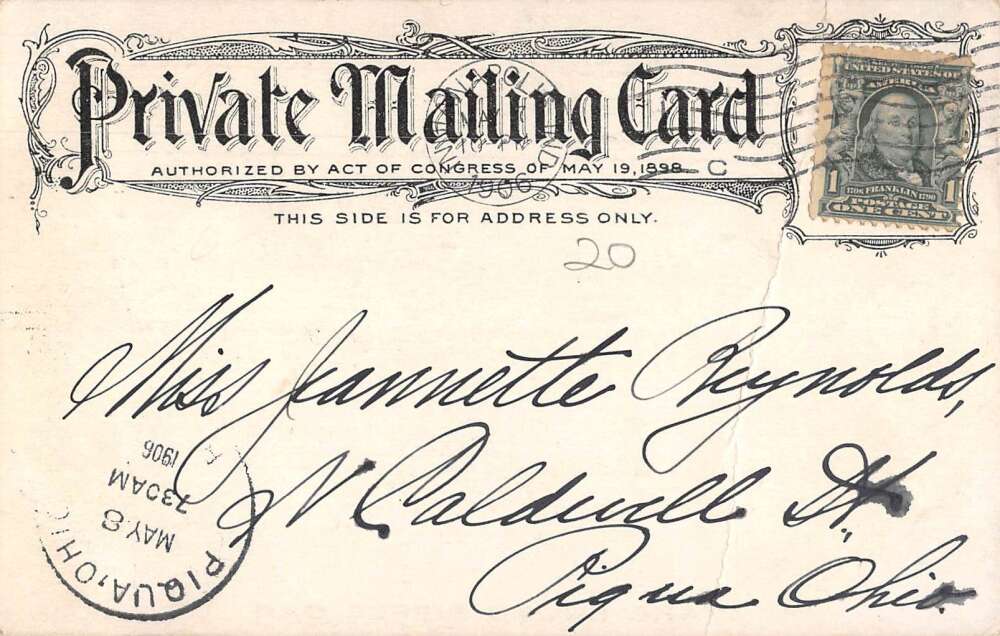 Private Mailing Card
AUTHORIZED BY ACT OF CONGRESS OF MAY 19, 1898.
C
1906
THIS SIDE IS FOR ADDRESS ONLY.
UNITED STATES OF
AMERICA
1706 FRANKLIN 1790
1 POSTAGE 1
ONE CENT
20
Miss Jeannette Reynolds,
N Caldwell St.
Piqua Ohio.
PIQUA, OHIO
MAY 8
730AM
1906